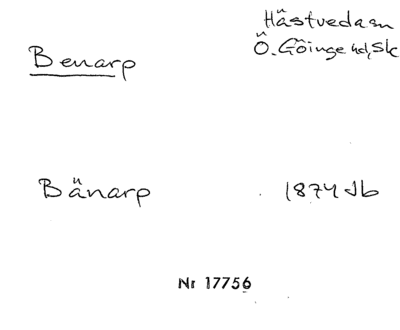 Hästveda sn
Ö. Göinge hd, Sk
Benarp
Bänarp 1874 Jb
Nr 17756